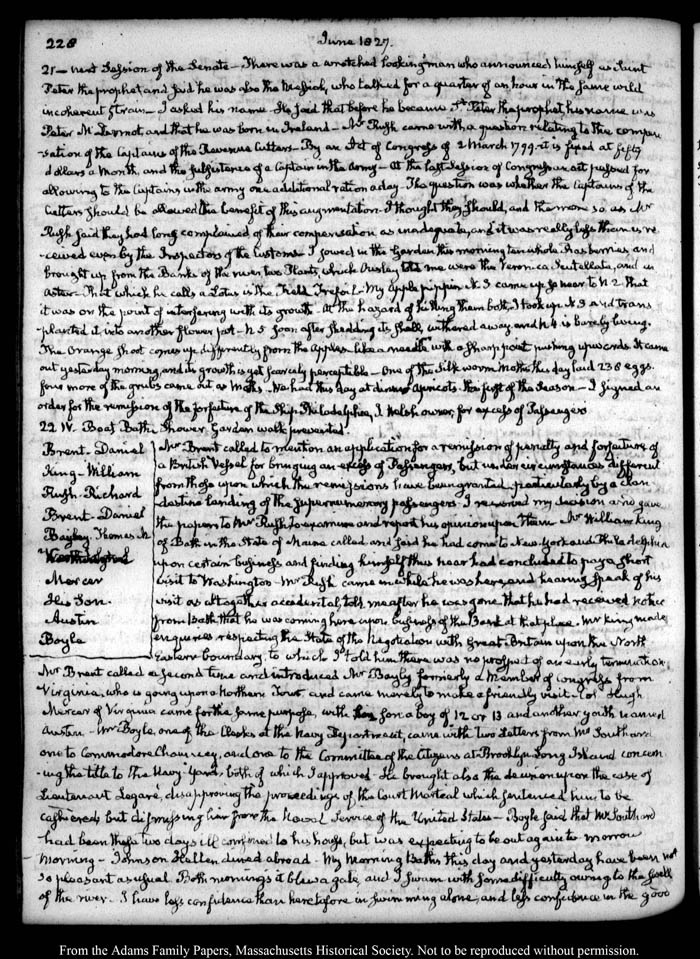 228
June 1827.
21— next Session of the Senate— There was a wretched looking man who announced himself as Saint
Peter the prophet and said he was also the Messiah, who talked for a quarter of an hour in the same wild
incoherent strain— I asked his name— He said that before he became St. Peter the prophet, his name was
Peter McDermot, and that he was born in Ireland— Mr Rush came with a question relating to the compen-
sation of the Captains of the Revenue Cutters— By an Act of Congress of 2 March 1799 it is fixed at fifty
dollars a Month, and the subsistence of a Captain in the Army— At the last Session of Congress an act passed for
allowing to the Captains in the army one additional ration a day. The question was whether the Captains of the
Cutters should be allowed the benefit of this augmentation. I thought they should, and the more so as Mr
Rush said they had long complained of their compensation as inadequate, and it was really less than is re-
ceived even by the Inspectors of the Customs— I sowed in the Garden this morning ten whole berries and
brought up from the Banks of the river, two Plants, which Ousley told me were the Veronica Scutellata, and an
Aster— That which he calls a Lotus is the Field Trefoil— My apple pippin N. 3 came up so near to N 2 that
it was on the point of interfering with its growth. At the hazard of killing them both, I took up N. 3 and trans-
planted it, into another flower pot— N 5 soon after shedding its shell, withered away, and N 4 is barely living.
The Orange Shoot comes up differently from the apples. Like a needle with a sharp point pushing upwards. It came
out yesterday morning, and its growth is yet scarcely perceptible— One of the Silk worm Moths this day laid 230 eggs.
four more of the grubs came out as Moths. We had this day at dinner Apricots. the first of the Season— I signed an
order for the remission of the forfeiture of the Ship Philadelphia, J Welsh owner, for excess of Passengers
22 IV. Boat Bath. Shower, Garden walk prevented.
Brent. Daniel
King. William
Rush. Richard
Brent. Daniel
Bayley Thomas M
Mercer
His Son.
Austin
Boyle
Mr Brent called to mention an application for a remission of penalty and forfeiture of
a British Vessel for bringing an excess of Passengers, but under circumstances different
from those upon which the remissions have been granted, particularly by a clan-
destine landing of the supernumerary passengers. I reserved my decision and gave
the papers to Mr Rush to examine and report his opinion upon them. Mr William King
of Bath in the State of Maine called and said he had come to New-York and Philadelphia
upon certain business and finding himself thus near had concluded to pay a short
visit to Washington— Mr Rush came in while he was here, and hearing speak of his
visit as altogether accidental, told me after he was gone that he had received notice
from Bath that he was coming here upon business of the Bank at that place. Mr King made
enquiries respecting the State of the Negotiation with Great Britain upon the North
Eastern boundary, to which I told him there was no prospect of an early termination.
Mr Brent called a second time and introduced Mr Bayly formerly a Member of Congress from
Virginia, who is going upon a Northern Tour, and came merely to make a friendly visit. Col. Hugh
Mercer of Virginia came for the same purpose, with his Son a boy of 12 or 13 and another youth named
Austin— Mr Boyle, one of the Clerks at the Navy Department, came with two Letters from Mr Southard
one to Commodore Chauncey, and one to the Committee of the Citizens at Brooklyn Long Island concern-
-ing the title to the Navy Yard, both of which I approved. He brought also the decision upon the case of
Lieutenant Legaré, disapproving the proceedings of the Court Martial which sentenced him to be
cashiered but dismissing him from the Naval Service of the United States— Boyle said that Mr Southard
had been these two days ill confined to his house, but was expecting to be out again to morrow
Morning— Johnson Hellen dined abroad— My Morning Baths this day and yesterday have been not
so pleasant as usual. Both mornings it blew a gale, and I swam with some difficulty owing to the swell
of the river. I have less confidence than heretofore in swimming alone, and less confidence in the good
From the Adams Family Papers, Massachusetts Historical Society. Not to be reproduced without permission.